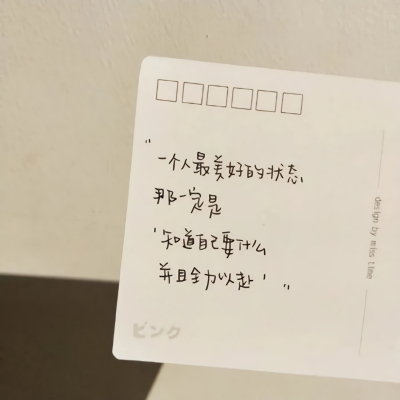 "一个人最美好的状态
那一定是
'知道自己要什么
并且全力以赴'"
ピンク
design by miss time